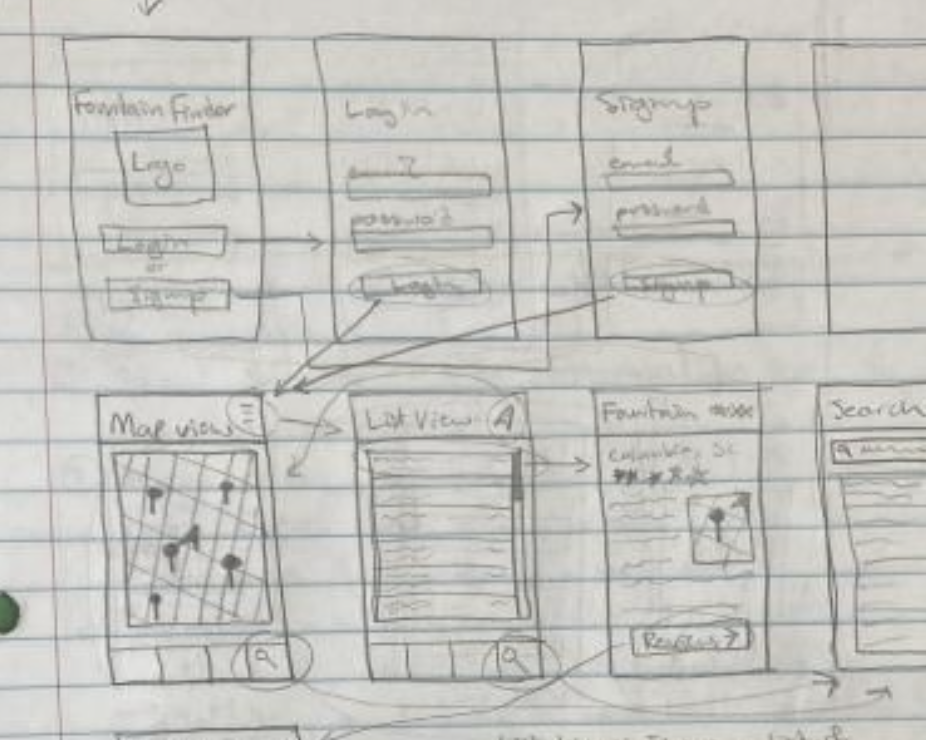 Fountain Finder
Logo
Login
or
Signup
Login
email
password
Login
Signup
email
password
Signup
Map view
List View
Fountain
Columbia, SC
Reviews
Search